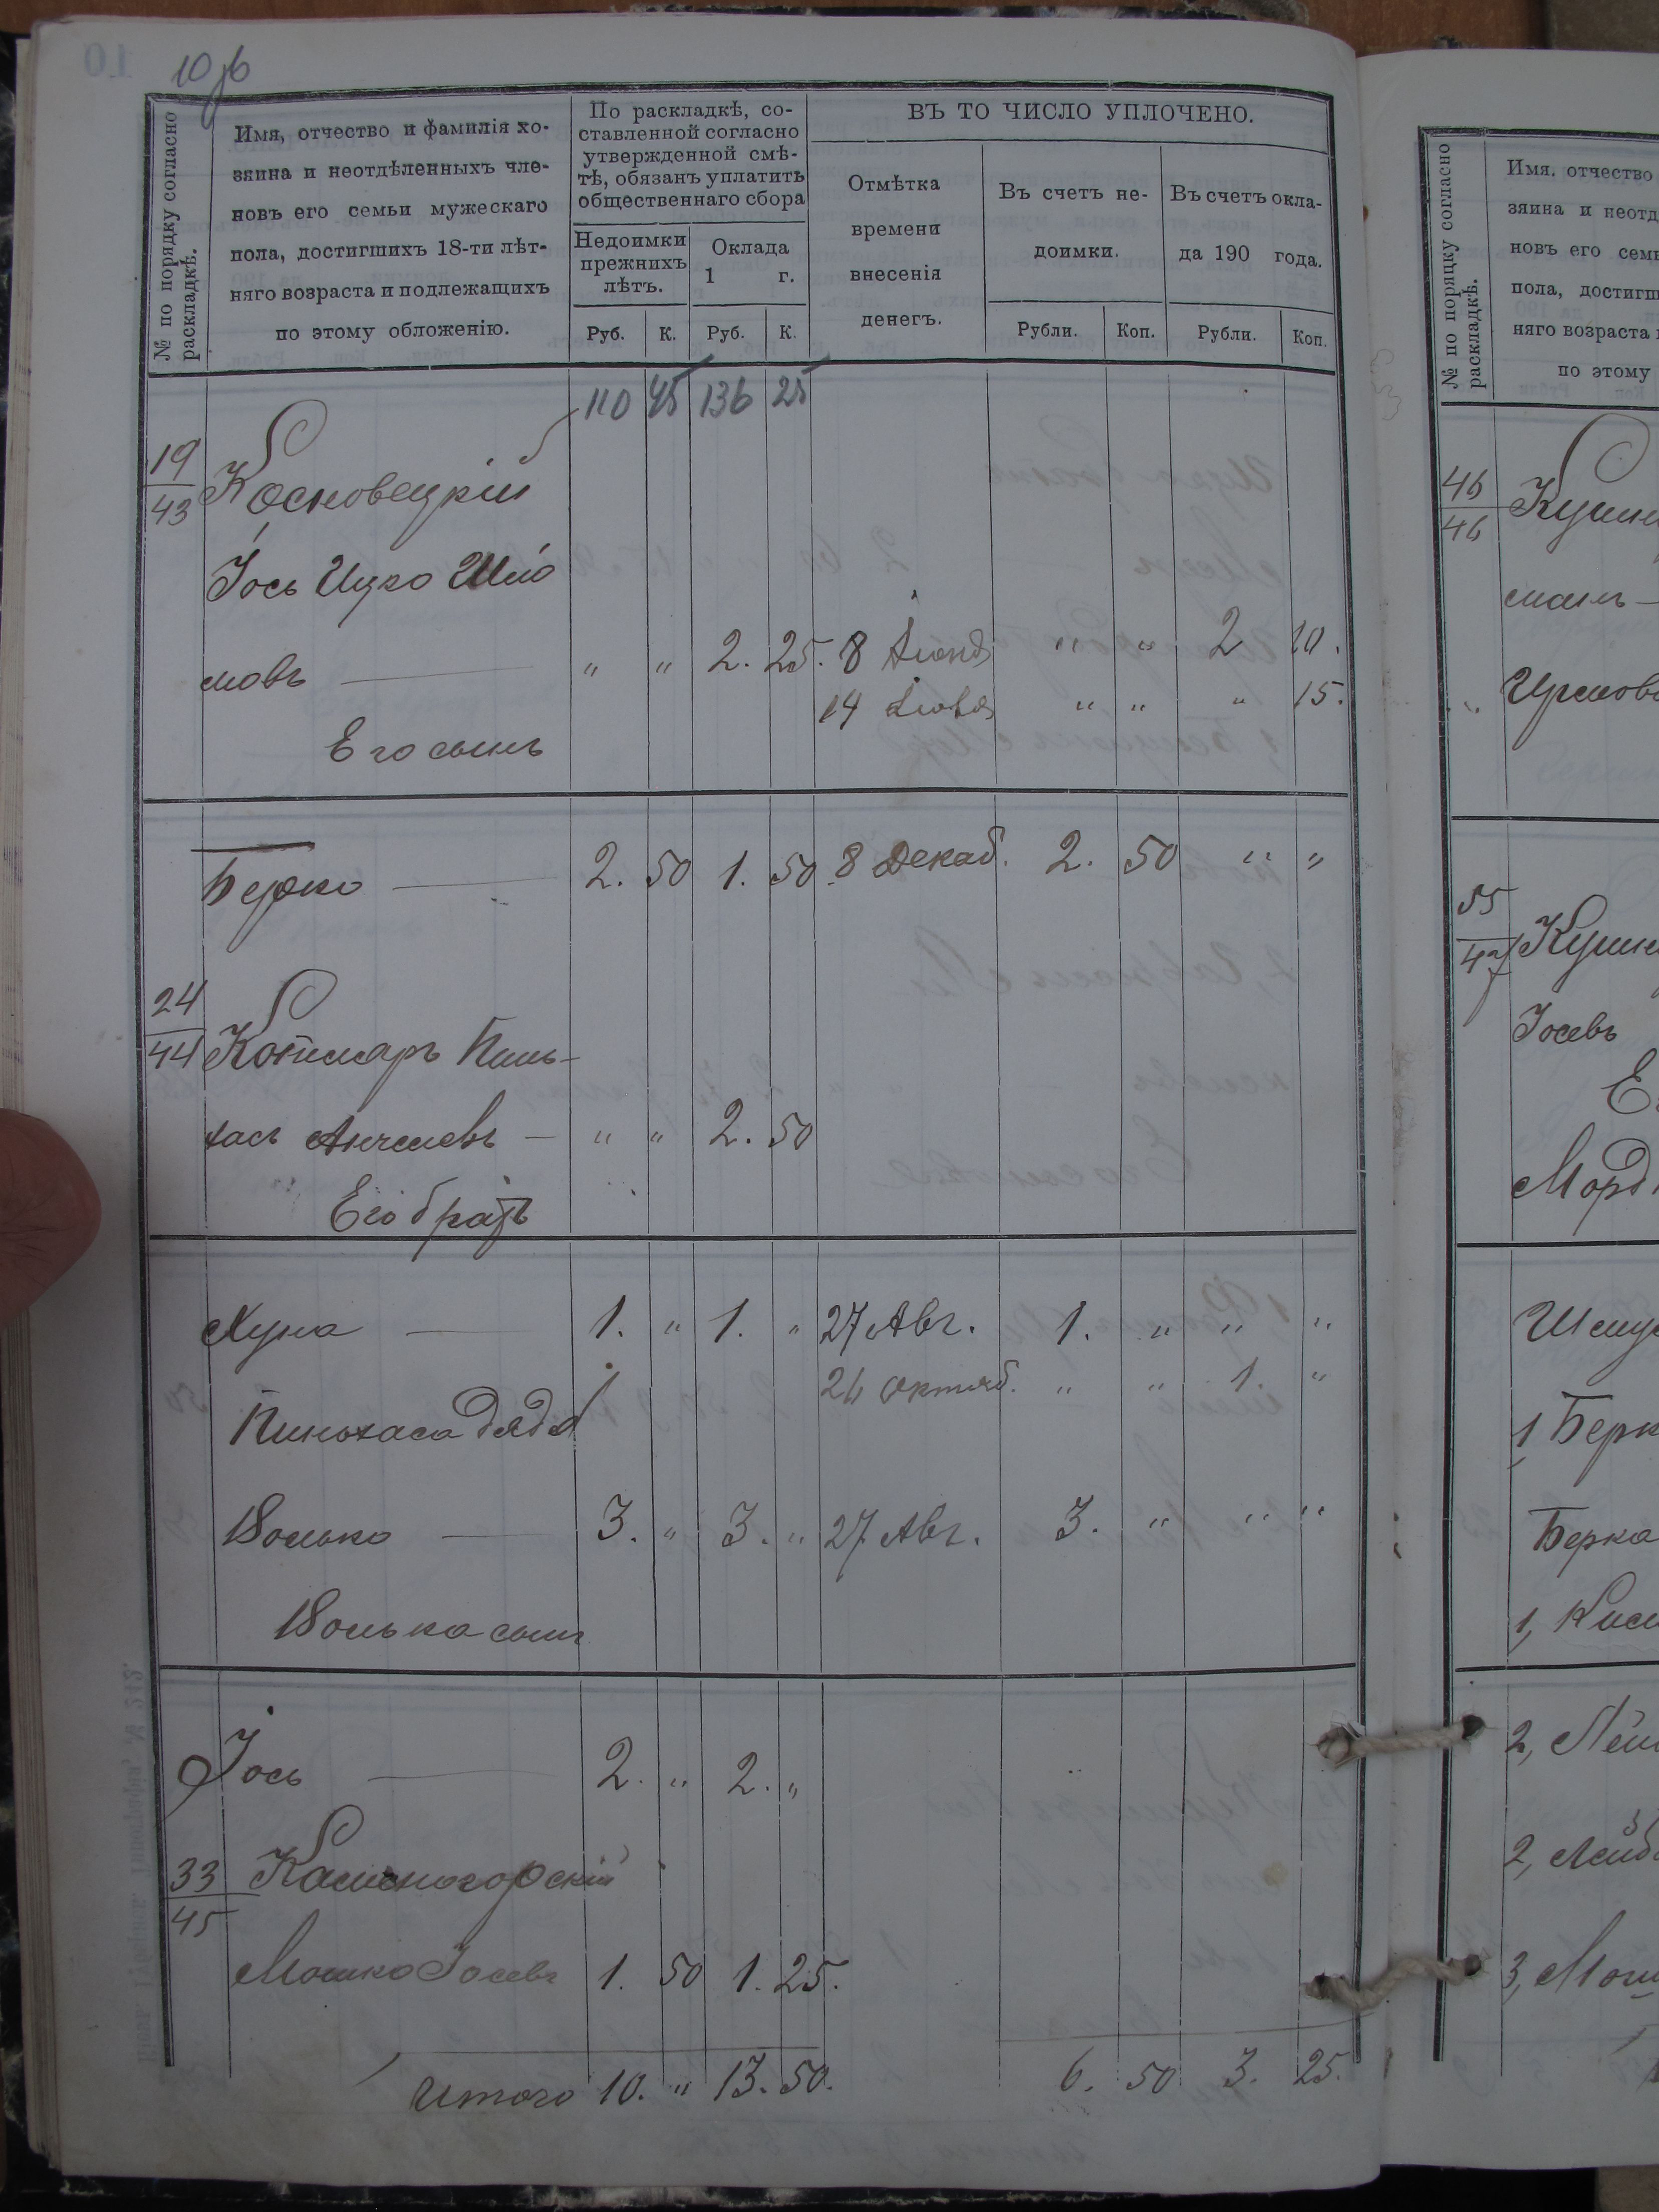 10 об
№ по порядку согласно раскладкѣ.
Имя, отчество и фамилія хо-
зяина и неотдѣленныхъ чле-
новъ его семьи мужескаго
пола, достигшихъ 18-ти лѣт-
няго возраста и подлежащихъ
по этому обложенію.
По раскладкѣ, со-
ставленной согласно
утвержденной смѣ-
тѣ, обязанъ уплатить
общественнаго сбора
Недоимки
прежнихъ
лѣтъ.
Оклада
1 г.
Руб. К. Руб. К.
ВЪ ТО ЧИСЛО УПЛОЧЕНО.
Отмѣтка
времени
внесенія
денегъ.
Въ счетъ не-
доимки.
Въ счетъ окла-
да 190 года.
Рубли. Коп. Рубли. Коп.
110 45 136 25
19/43 Косновецкій
Іось Ицко Шло
мовъ — " " 2. 25. 8 Іюня " " 2 10.
14 " " " 15.
Его сынъ
Берко — 2. 50 1. 50 8 Декаб. 2. 50 " "
24/44 Котляръ Пинь-
хасъ Анчелевъ — " " 2. 50
Его братъ
Хуна — 1. " 1. " 27 Авг. 1. " " "
26 Октяб. " " 1. "
Пиньхаса дядя
Волько — 3. " 3. " 27 Авг. 3. " " "
Волька сынъ
Іось — 2. " 2. "
33/45 Каменогорскій
Мошко Іосевъ 1. 50 1. 25.
Итого 10. " 13. 50. 6. 50 3. 25.
№ по порядку согласно раскладкѣ.
Имя, отчество
зяина и неотд
новъ его семь
пола, достигш
няго возраста
по этому
46/46
55/47
Іосевъ
1 Берк
Берка